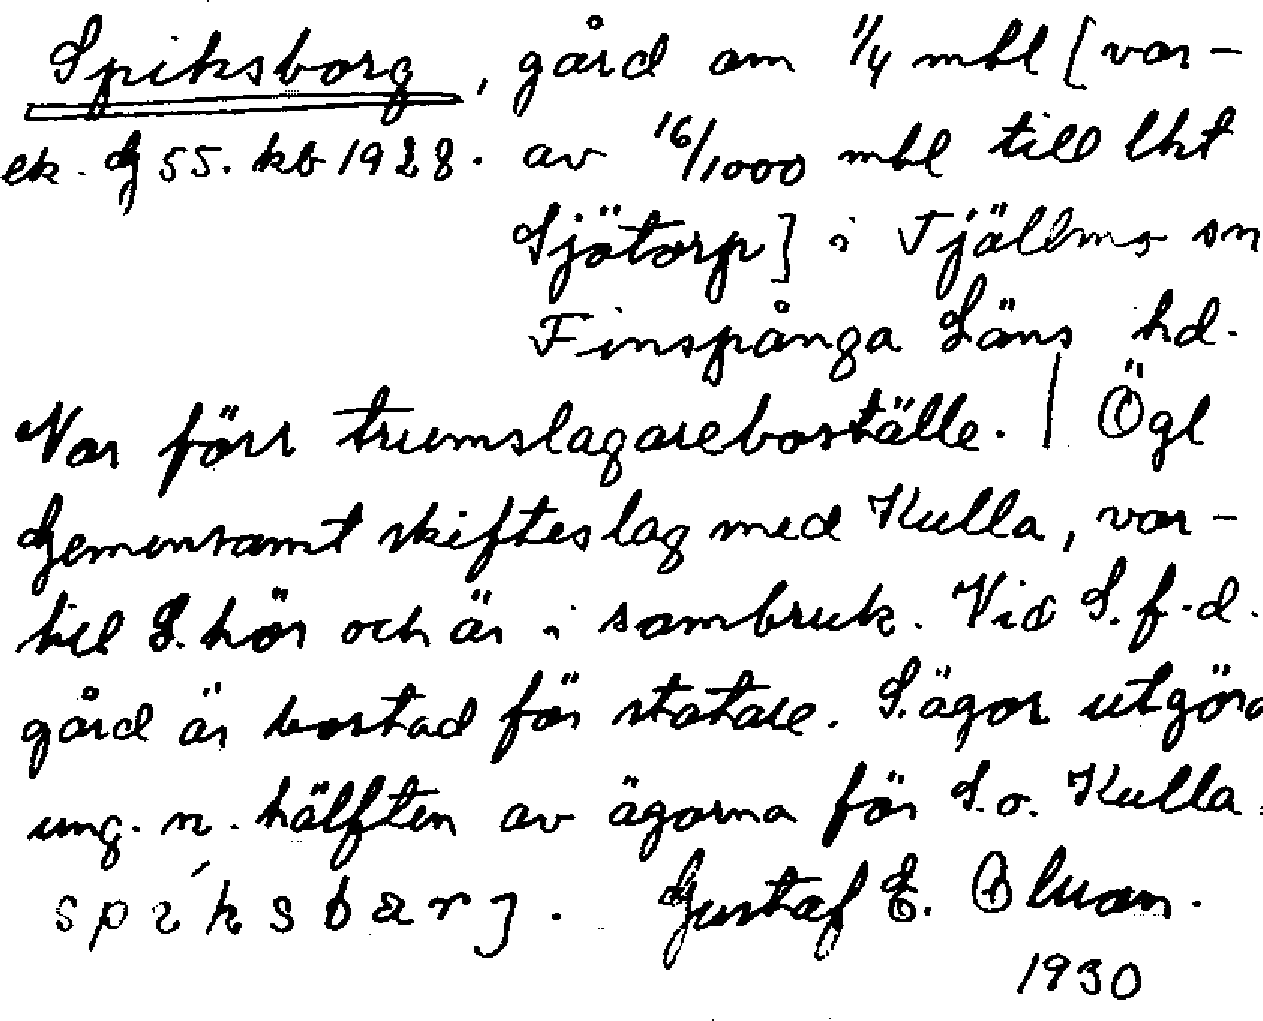 Spiksborg, gård om 1/4 mtl [var-
ek. bl 55. kb 1928. av 16/1000 mtl till lht
Sjötorp] i Tjällmo sn
Finspånga Läns hd.
Var förr trumslagareboställe. | Ögl
Gemensamt skifteslag med Kulla, var-
till S. hör och är i sambruk. Vid S. f.d.
gård är bostad för statare. S. ägor utgöra
ung. n. hälften av ägorna för S. o. Kulla.
spiksbarj. Gustaf E.
1930